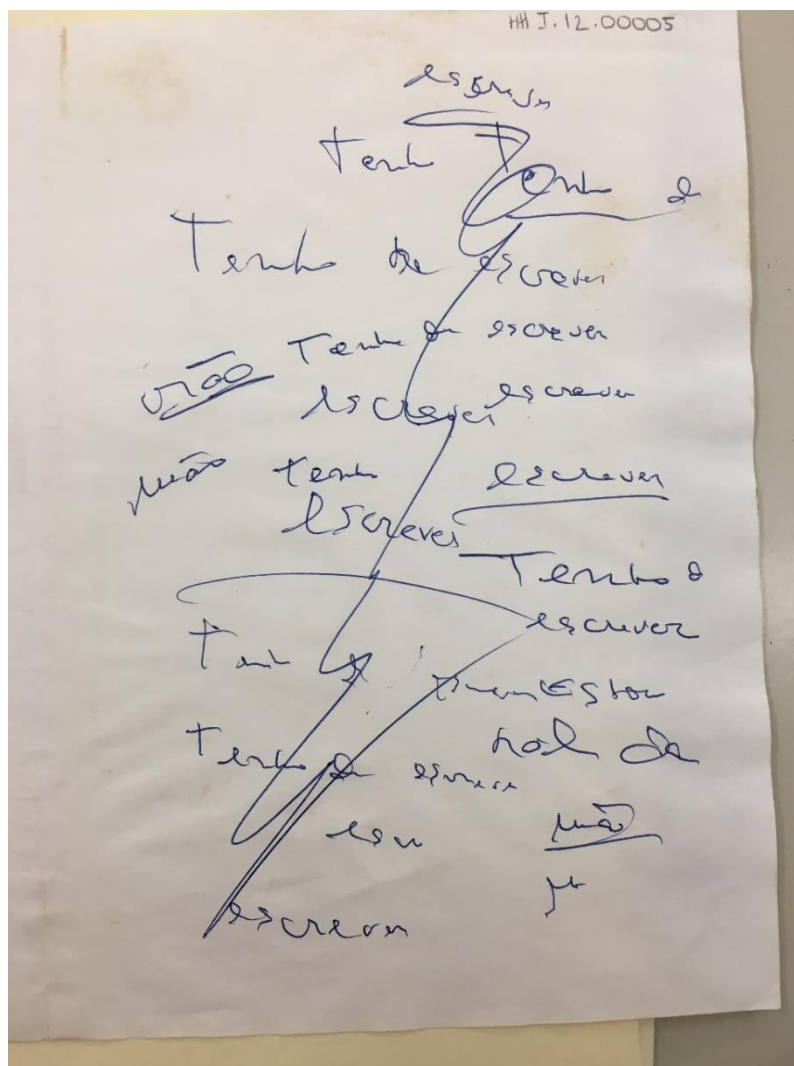 HH J.12.00005
escrever
Tenho Tenho d
Tenho de escrever
Tenho de escrever
não escrever escrever
mão tenho escrever
escrever
Tenho d
escrever
Estou
Tenho de escrever mal de
escr mão
escrever